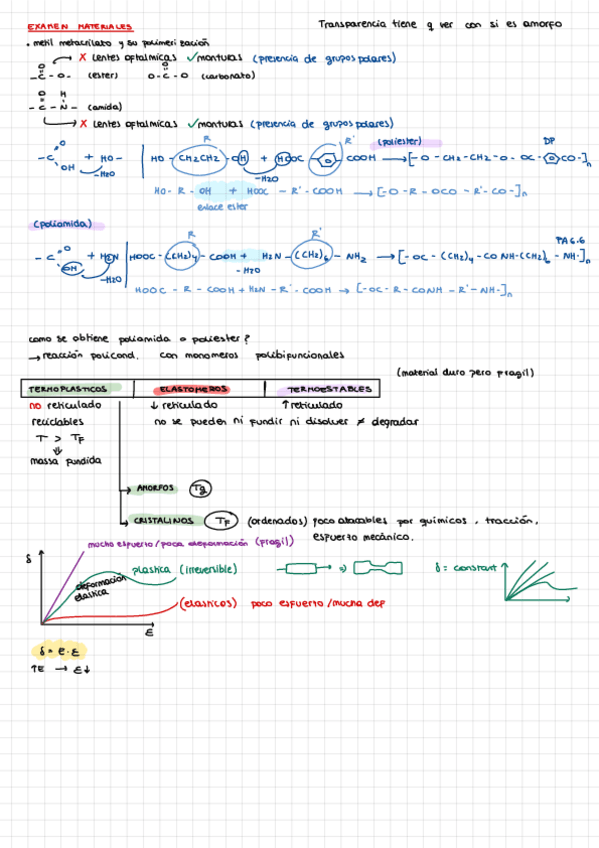 EXAMEN MATERIALES
Transparencia tiene q ver con si es amorfo
• metil metacrilato y su polimerización
X lentes oftalmicas ✓monturas (presencia de grupos polares)
-C-O- (ester) O-C-O (carbonato)
O H
-C-N- (amida)
X lentes oftalmicas ✓monturas (presencia de grupos polares)
R R' (poliester) DP
-C O OH + HO- | HO-CH2CH2-OH + HOOC COOH → [-O-CH2-CH2-O-OC- CO-]n
-H2O -H2O
HO-R-OH + HOOC-R'-COOH → [-O-R-OCO-R'-CO-]n
enlace ester
(poliamida) R R' PA 6.6
-C O OH + HON | HOOC-(CH2)4-COOH + H2N-(CH2)6-NH2 → [-OC-(CH2)4-CONH-(CH2)6-NH-]n
-H2O -H2O
HOOC-R-COOH + H2N-R'-COOH → [-OC-R-CONH-R'-NH-]n
como se obtiene poliamida o poliester?
→ reacción policond. con monomeros polibifuncionales
(material duro pero fragil)
TERMOPLASTICOS ELASTOMEROS TERMOESTABLES
no reticulado ↓ reticulado ↑ reticulado
reciclables no se pueden ni fundir ni disolver ≠ degradar
T > TF
⇓
massa fundida
AMORFOS Tg
CRISTALINOS TF (ordenados) poco atacables por quimicos, tracción,
esfuerzo mecánico.
mucho esfuerzo/poca deformación (fragil)
δ plastica (irreversible) ⇒ δ = constant
deformación
elastica
(elasticos) poco esfuerzo/mucha def
ε
δ = e·ε
↑E → ε↓